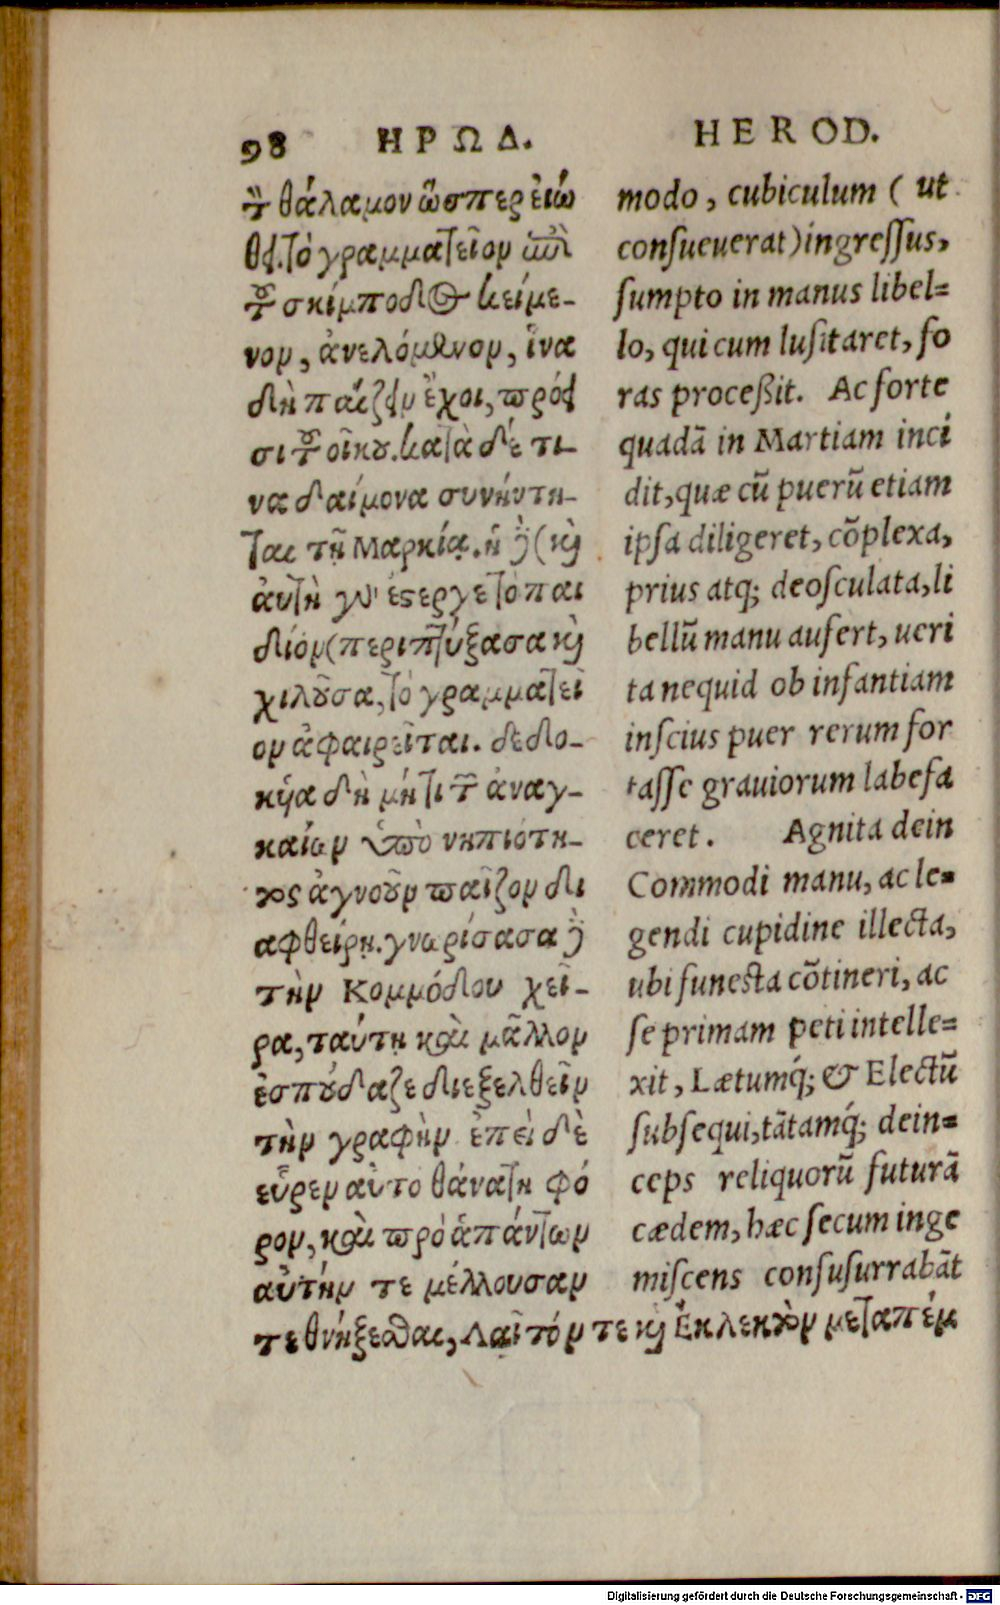 98 ΗΡΩΔ.
τὸν θάλαμον ὥσπερ εἰώ
θει. τὸ γραμματεῖον ἐπὶ
τοῦ σκίμποδος κείμε-
νον, ἀνελόμενον, ἵνα
δὴ παίζειν ἔχοι, πρόει
σι τοῦ οἴκου. κατὰ δέ τι-
να δαίμονα συνήντη-
ται τῇ Μαρκίᾳ. ἡ δὲ (καὶ
αὐτὴ γὰρ ἔστεργε τὸ παι
δίον (περιπτύξασα καὶ
χιλοῦσα, τὸ γραμματεῖ
ον ἀφαιρεῖται. δεδιο-
κῆα δὴ μήτι τῶν ἀναγ-
καίων ὑπὸ νηπιότη-
τος ἀγνοοῦν παῖζον δι
αφθείρῃ. γνωρίσασα δὲ
τὴν Κομμόδου χεῖ-
ρα, ταύτῃ καὶ μᾶλλον
ἐσπούδαζε διεξελθεῖν
τὴν γραφὴν ἐπεὶ δὲ
εὗρεν αὐτὸ θανατη φό
ρον, καὶ πρὸ ἁπάντων
αὐτήν τε μέλλουσαν
τεθνήξεσθαι, Λαῖτόν τε καὶ Ἔκλεκτον μεταπέμ
HEROD.
modo, cubiculum ( ut
consueuerat) ingressus,
sumpto in manus libel=
lo, qui cum lusitaret, fo
ras proceßit. Ac forte
quadã in Martiam inci
dit, quæ cũ puerũ etiam
ipsa diligeret, cõplexa,
prius atq; deosculata, li
bellũ manu aufert, ueri
ta ne quid ob infantiam
inscius puer rerum for
tasse grauiorum labefa
ceret. Agnita dein
Commodi manu, ac le=
gendi cupidine illecta,
ubi funesta cõtineri, ac
se primam peti intelle=
xit, Lætumq́; & Electũ
subsequi, tãtamq́; dein=
ceps reliquorũ futurã
cædem, hæc secum inge
miscens consusurrabãt
Digitalisierung gefördert durch die Deutsche Forschungsgemeinschaft - DFG